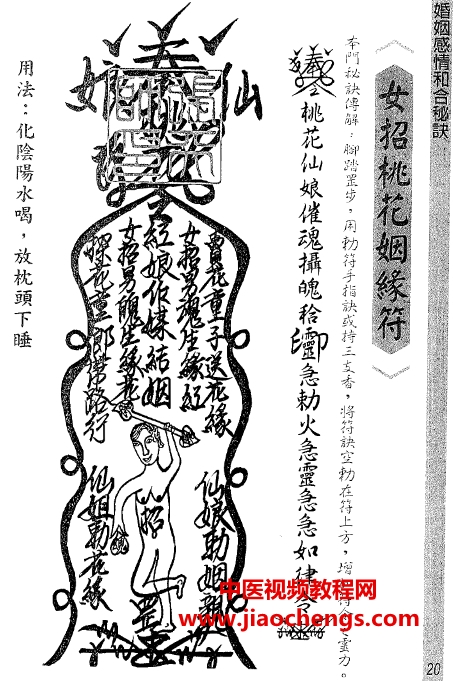 婚姻感情和合秘訣
女招桃花姻緣符
本門秘訣傳解：腳踏罡步，用勅符手指訣或持三支香，將符訣空勅在符上方，增
靈力。
桃花仙娘催魂攝魄
靈急勅火急靈急急如律令
仙
娘
買花童子送花緣
女招男魂生緣紅
紅娘作媒結姻
女招男魄生緣花
探花童郎帶路行
仙娘勅姻
招
仙姐勅花緣
罡
用法：化陰陽水喝，放枕頭下睡
中医视频教程网
www.jiaochengs.com
20